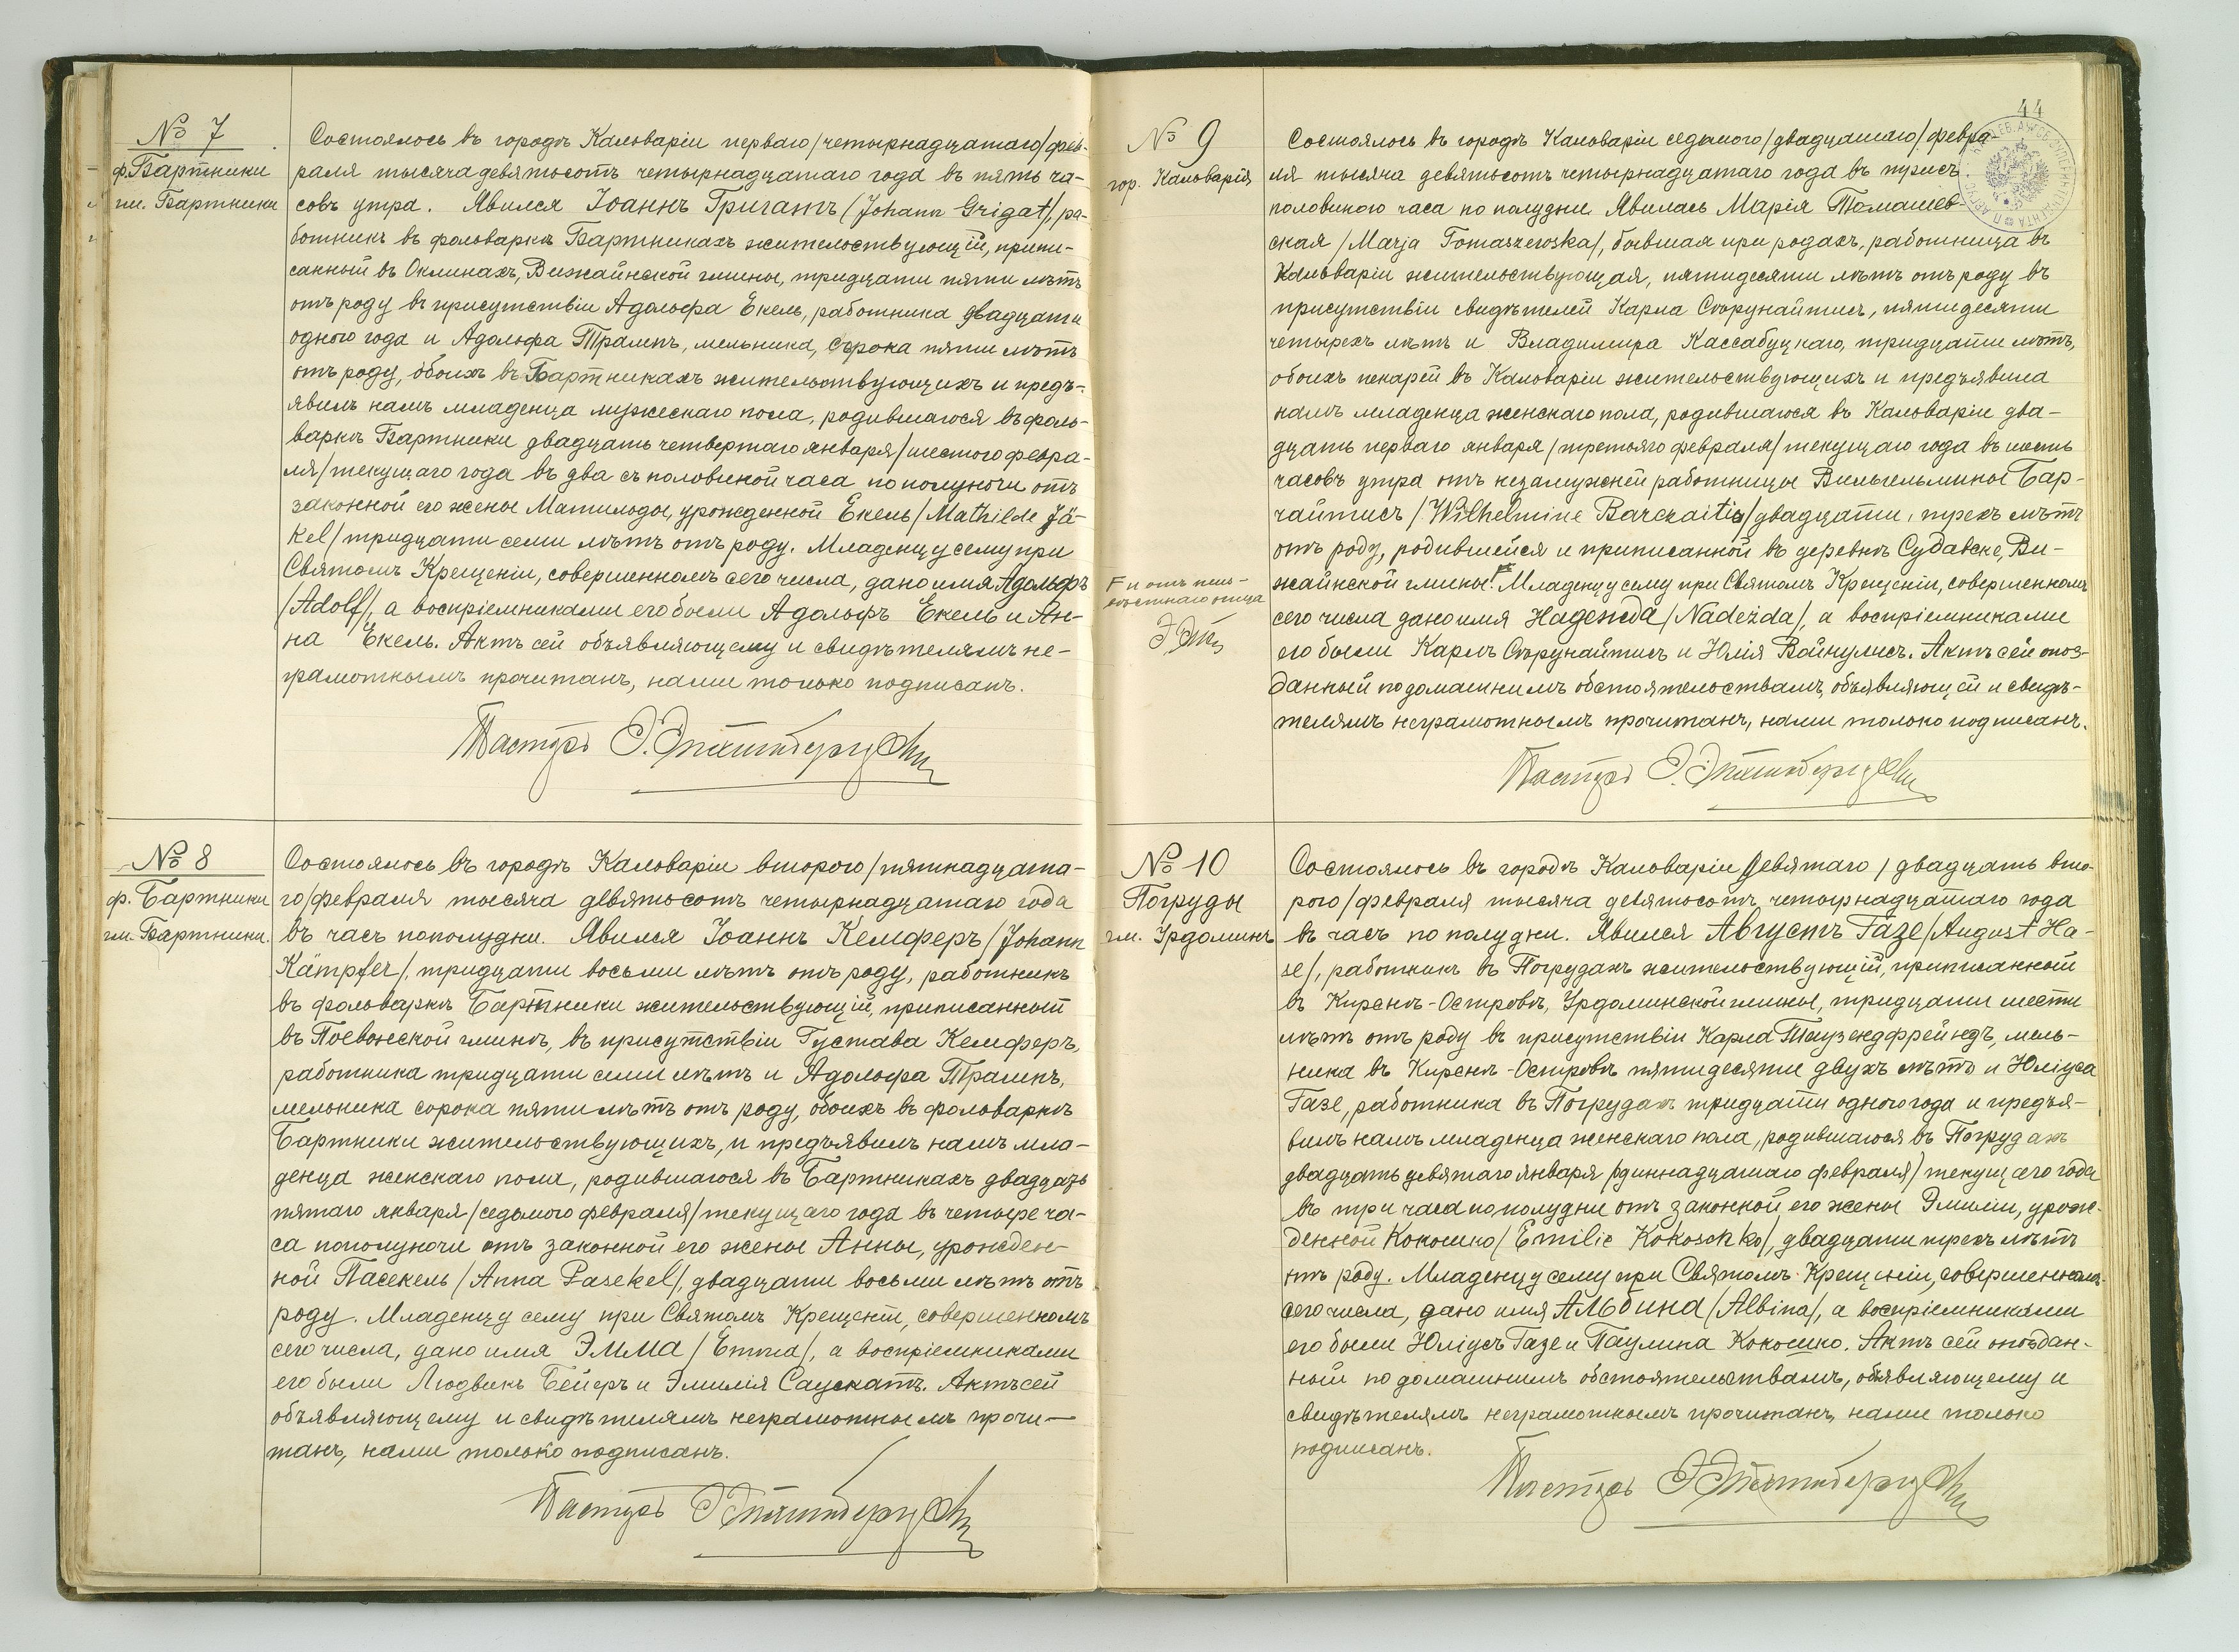 № 7
ф. Бартники
гм. Бартники
Состоялось въ городѣ Кальваріи перваго /четырнадцатаго/ фев-
раля тысяча девятьсотъ четырнадцатаго года въ пять ча-
совъ утра. Явился Іоаннъ Григатъ /Johann Grigat/, ра-
ботникъ въ фольваркѣ Бартникахъ жительствующій, припи-
санный въ Оклинахъ, Вижайнской гмины, тридцати пяти лѣтъ
отъ роду въ присутствіи Адольфа Екель, работника двадцати
одного года и Адольфа Трампъ, мельника, сорока пяти лѣтъ
отъ роду, обоихъ въ Бартникахъ жительствующихъ и предъ-
явилъ намъ младенца мужескаго пола, родившагося въ фоль-
варкѣ Бартники двадцать четвертаго января /шестого февра-
ля/ текущаго года въ два съ половиной часа по полуночи отъ
законной его жены Матильды, урожденной Екель /Mathilde Jä-
kel/ тридцати семи лѣтъ отъ роду. Младенцу сему при
Святомъ Крещеніи, совершенномъ сего числа, дано имя Адольфъ
/Adolf/, а воспріемниками его были Адольфъ Екель и Ан-
на Екель. Актъ сей объявляющему и свидѣтелямъ не-
грамотнымъ прочитанъ, нами только подписанъ.
Пасторъ
№ 8
ф. Бартники
гм. Бартники.
Состоялось въ городѣ Кальваріи второго /пятнадцата-
го/ февраля тысяча девятьсотъ четырнадцатаго года
въ часъ пополудни. Явился Іоаннъ Кемпферъ /Johann
Kämpfer/, тридцати восьми лѣтъ отъ роду, работникъ
въ фольваркѣ Бартники жительствующій, приписанный
въ Поевонской гминѣ, въ присутствіи Густава Кемпферъ,
работника тридцати семи лѣтъ и Адольфа Трампъ,
мельника сорока пяти лѣтъ отъ роду, обоихъ въ фольваркѣ
Бартники жительствующихъ, и предъявилъ намъ мла-
денца женскаго пола, родившагося въ Бартникахъ двадцать
пятаго января /седьмого февраля/ текущаго года въ четыре ча-
са пополуночи отъ законной его жены Анны, урожден-
ной Пасекель /Anna Pasekel/, двадцати восьми лѣтъ отъ
роду. Младенцу сему при Святомъ Крещеніи, совершенномъ
сего числа, дано имя Эмма /Emma/, а воспріемниками
его были Людвикъ Бейеръ и Эмилія Саускатъ. Актъ сей
объявляющему и свидѣтелямъ неграмотнымъ прочи-
танъ, нами только подписанъ.
Пасторъ
44
№ 9
гор. Кальварія
Состоялось въ городѣ Кальваріи седьмого /двадцатаго/ февра-
ля тысяча девятьсотъ четырнадцатаго года въ три съ
половиною часа по полудни. Явилась Марія Томашев-
ская /Marja Tomaszewska/, бывшая при родахъ, работница въ
Кальваріи жительствующая, пятидесяти лѣтъ отъ роду въ
присутствіи свидѣтелей Карла Струнайтисъ, пятидесяти
четырехъ лѣтъ и Владимира Кассабуцкаго, тридцати лѣтъ,
обоихъ пекарей въ Кальваріи жительствующихъ и предъявила
намъ младенца женскаго пола, родившагося въ Кальваріи два-
дцать перваго января /третьяго февраля/ текущаго года въ шесть
часовъ утра отъ незамужней работницы Вильгельмины Бар-
чайтисъ /Wilhelmine Barczaitis/ двадцати трехъ лѣтъ
отъ роду, родившейся и приписанной въ деревнѣ Судавске, Ви-
жайнской гмины. Младенцу сему при Святомъ Крещеніи, совершенномъ
сего числа дано имя Надежда /Nadežda/, а воспріемниками
его были Карлъ Струнайтисъ и Юлія Войнулисъ. Актъ сей опоз-
данный по домашнимъ обстоятельствамъ, объявляющей и свидѣ-
телямъ неграмотнымъ прочитанъ, нами только подписанъ.
и отъ неиз-
вѣстнаго отца
Пасторъ
№ 10
Погруды
гм. Урдоминъ
Состоялось въ городѣ Кальваріи девятаго /двадцать вто-
рого/ февраля тысяча девятьсотъ четырнадцатаго года
въ часъ по полудни. Явился Августъ Газе /August Ha-
se/, работникъ въ Погрудахъ жительствующій, приписанный
въ Кирснѣ-Островѣ, Урдоминской гмины, тридцати шести
лѣтъ отъ роду въ присутствіи Карла Таузендфрейндъ, мель-
ника въ Кирснѣ-Островѣ пятидесяти двухъ лѣтъ и Юліуса
Газе, работника въ Погрудахъ тридцати одного года и предъя-
вилъ намъ младенца женскаго пола, родившагося въ Погрудахъ
двадцать девятаго января /одиннадцатаго февраля/ текущаго года
въ три часа по полудни отъ законной его жены Эмиліи, урож-
денной Кокошко /Emilie Kokoschko/, двадцати трехъ лѣтъ
отъ роду. Младенцу сему при Святомъ Крещеніи, совершенномъ
сего числа, дано имя Альбина /Albina/, а воспріемниками
его были Юліусъ Газе и Паулина Кокошко. Актъ сей опоздан-
ный по домашнимъ обстоятельствамъ, объявляющему и
свидѣтелямъ неграмотнымъ прочитанъ, нами только
подписанъ.
Пасторъ